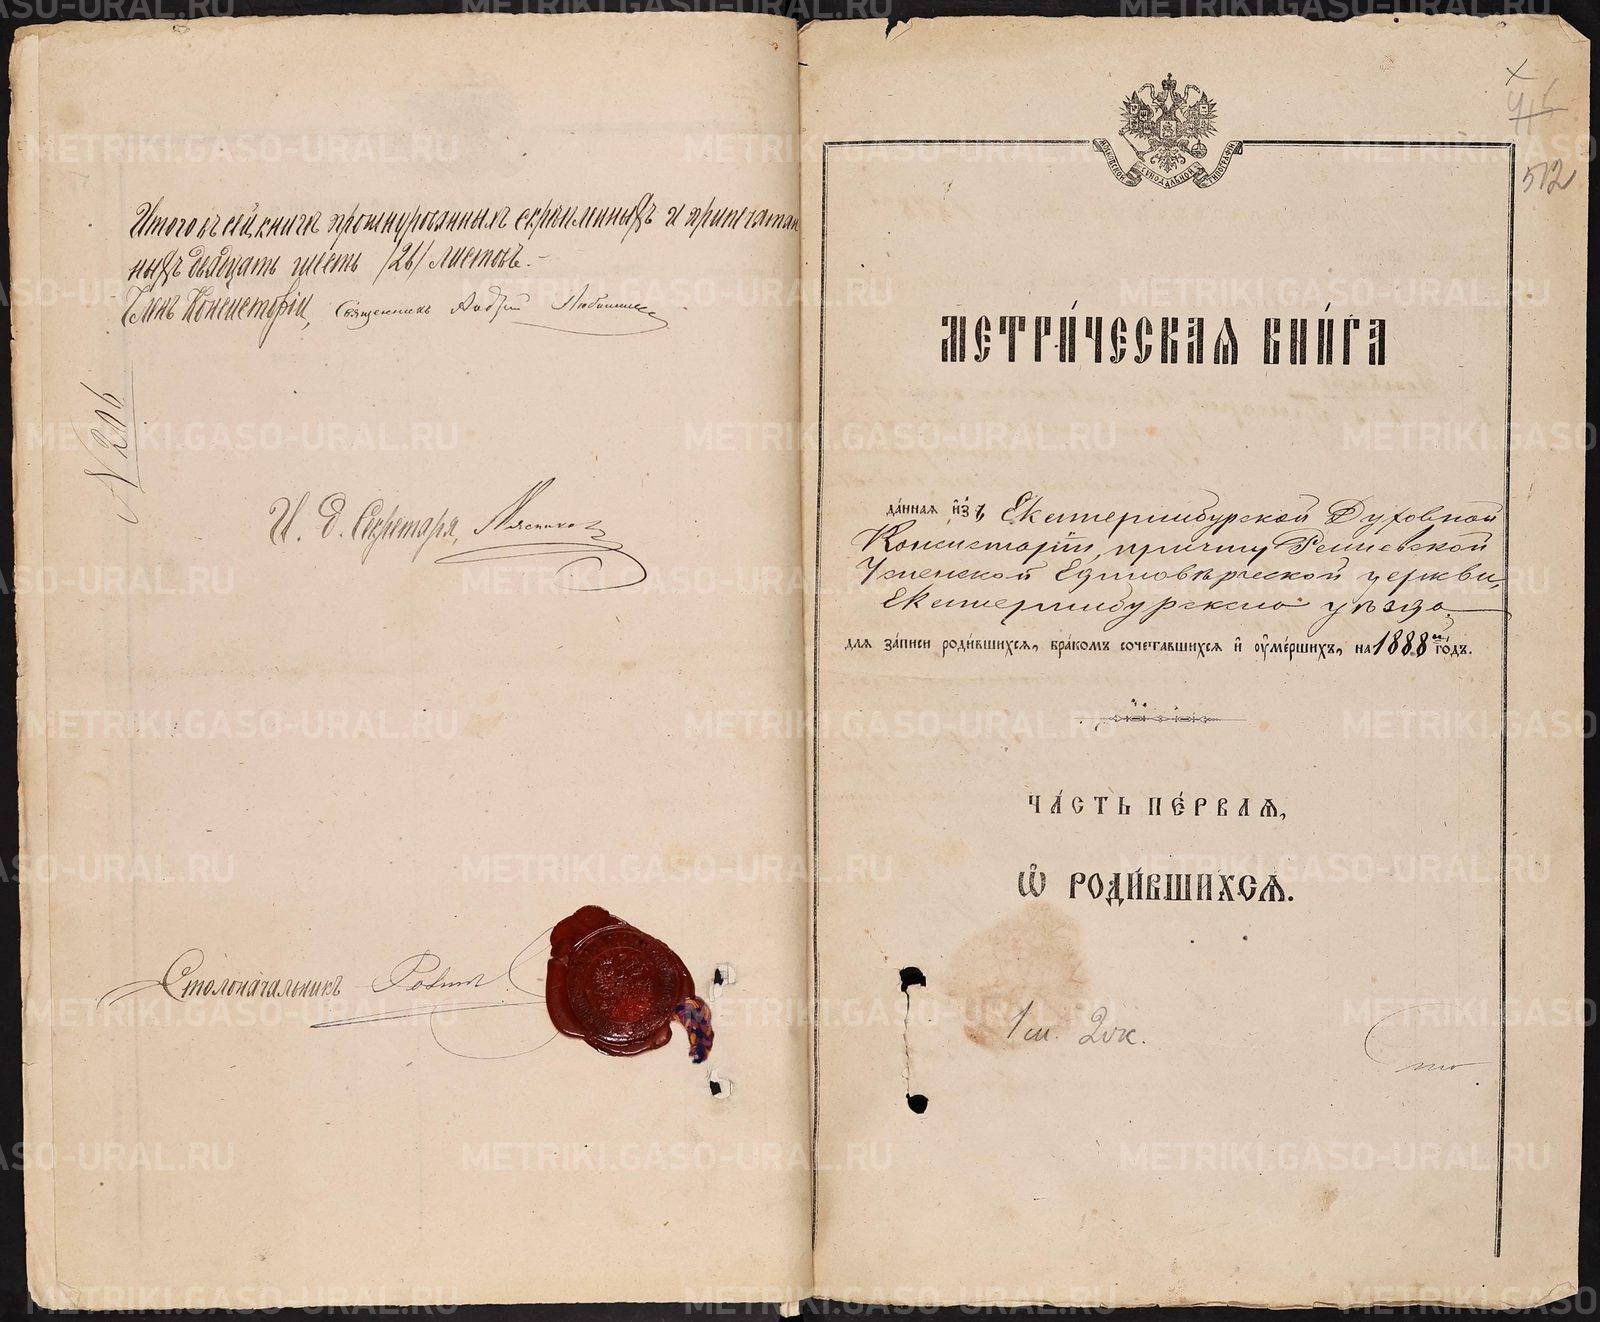 Итого въ сей книгѣ прошнурованныхъ скрѣпленныхъ и припечатан
ныхъ двадцать шесть /26/ листовъ.-
Членъ Консисторіи, Священникъ Андрей
№ 206
И. д. Секретаря, Мясников
Столоначальникъ
416
512
МОСКОВСКОЙ СѴНОДАЛЬНОЙ ТИПОГРАФІИ
МЕТРИ́ЧЕСКАѦ КНИ́ГА
да́ннаѧ и҆з̾ Екатеринбургской Духовной
Консисторіи, причту Режевской
Успенской Единовѣрческой церкви,
Екатеринбургскаго уѣзда.
длѧ за́писи роди́вшихсѧ, бра́комъ сочета́вшихсѧ и҆ ᲂу҆ме́ршихъ, на 1888й го́дъ.
ЧА́СТЬ ПЕ́РВАѦ,
Ѽ РОДИ́ВШИХСѦ.
METRIKI.GASO-URAL.RU